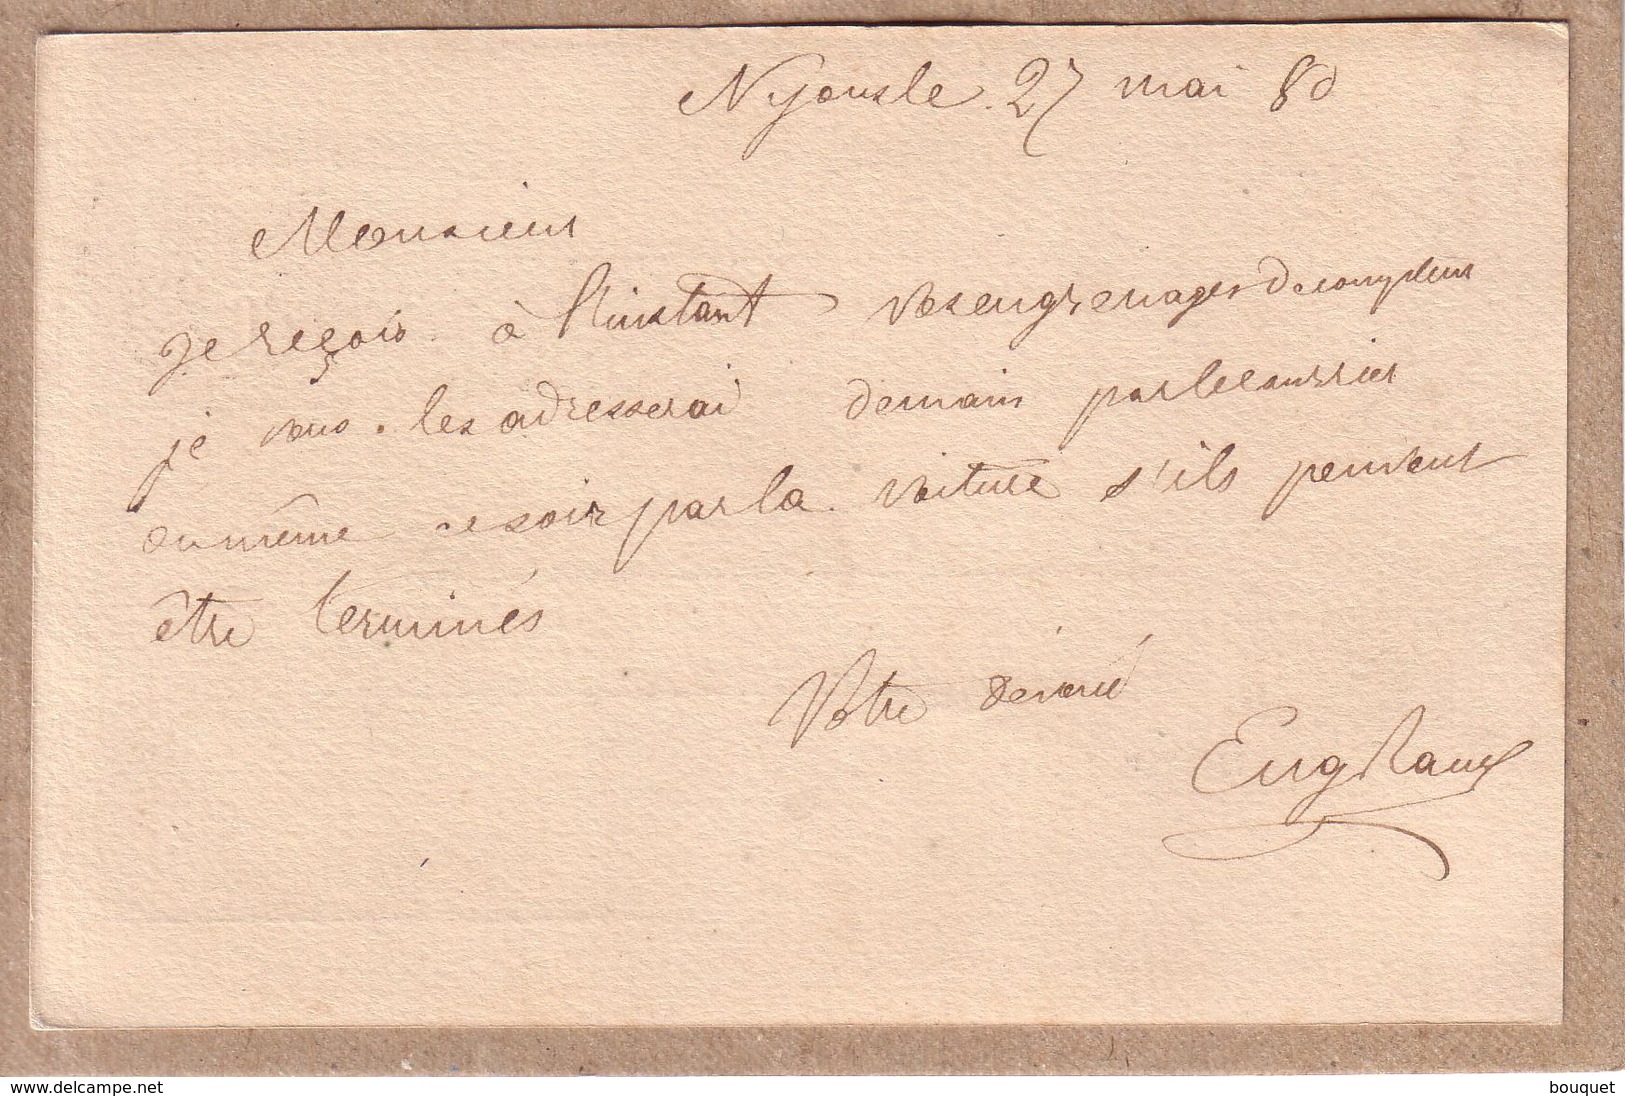 27 mai 80
Monsieur
je reçois à l'instant vos engrenages de compteur
je vous les adresserai demain par le courrier
ou même ce soir par la voiture s'ils peuvent
être terminés
Votre dévoué
Eug
www.delcampe.net
bouquet